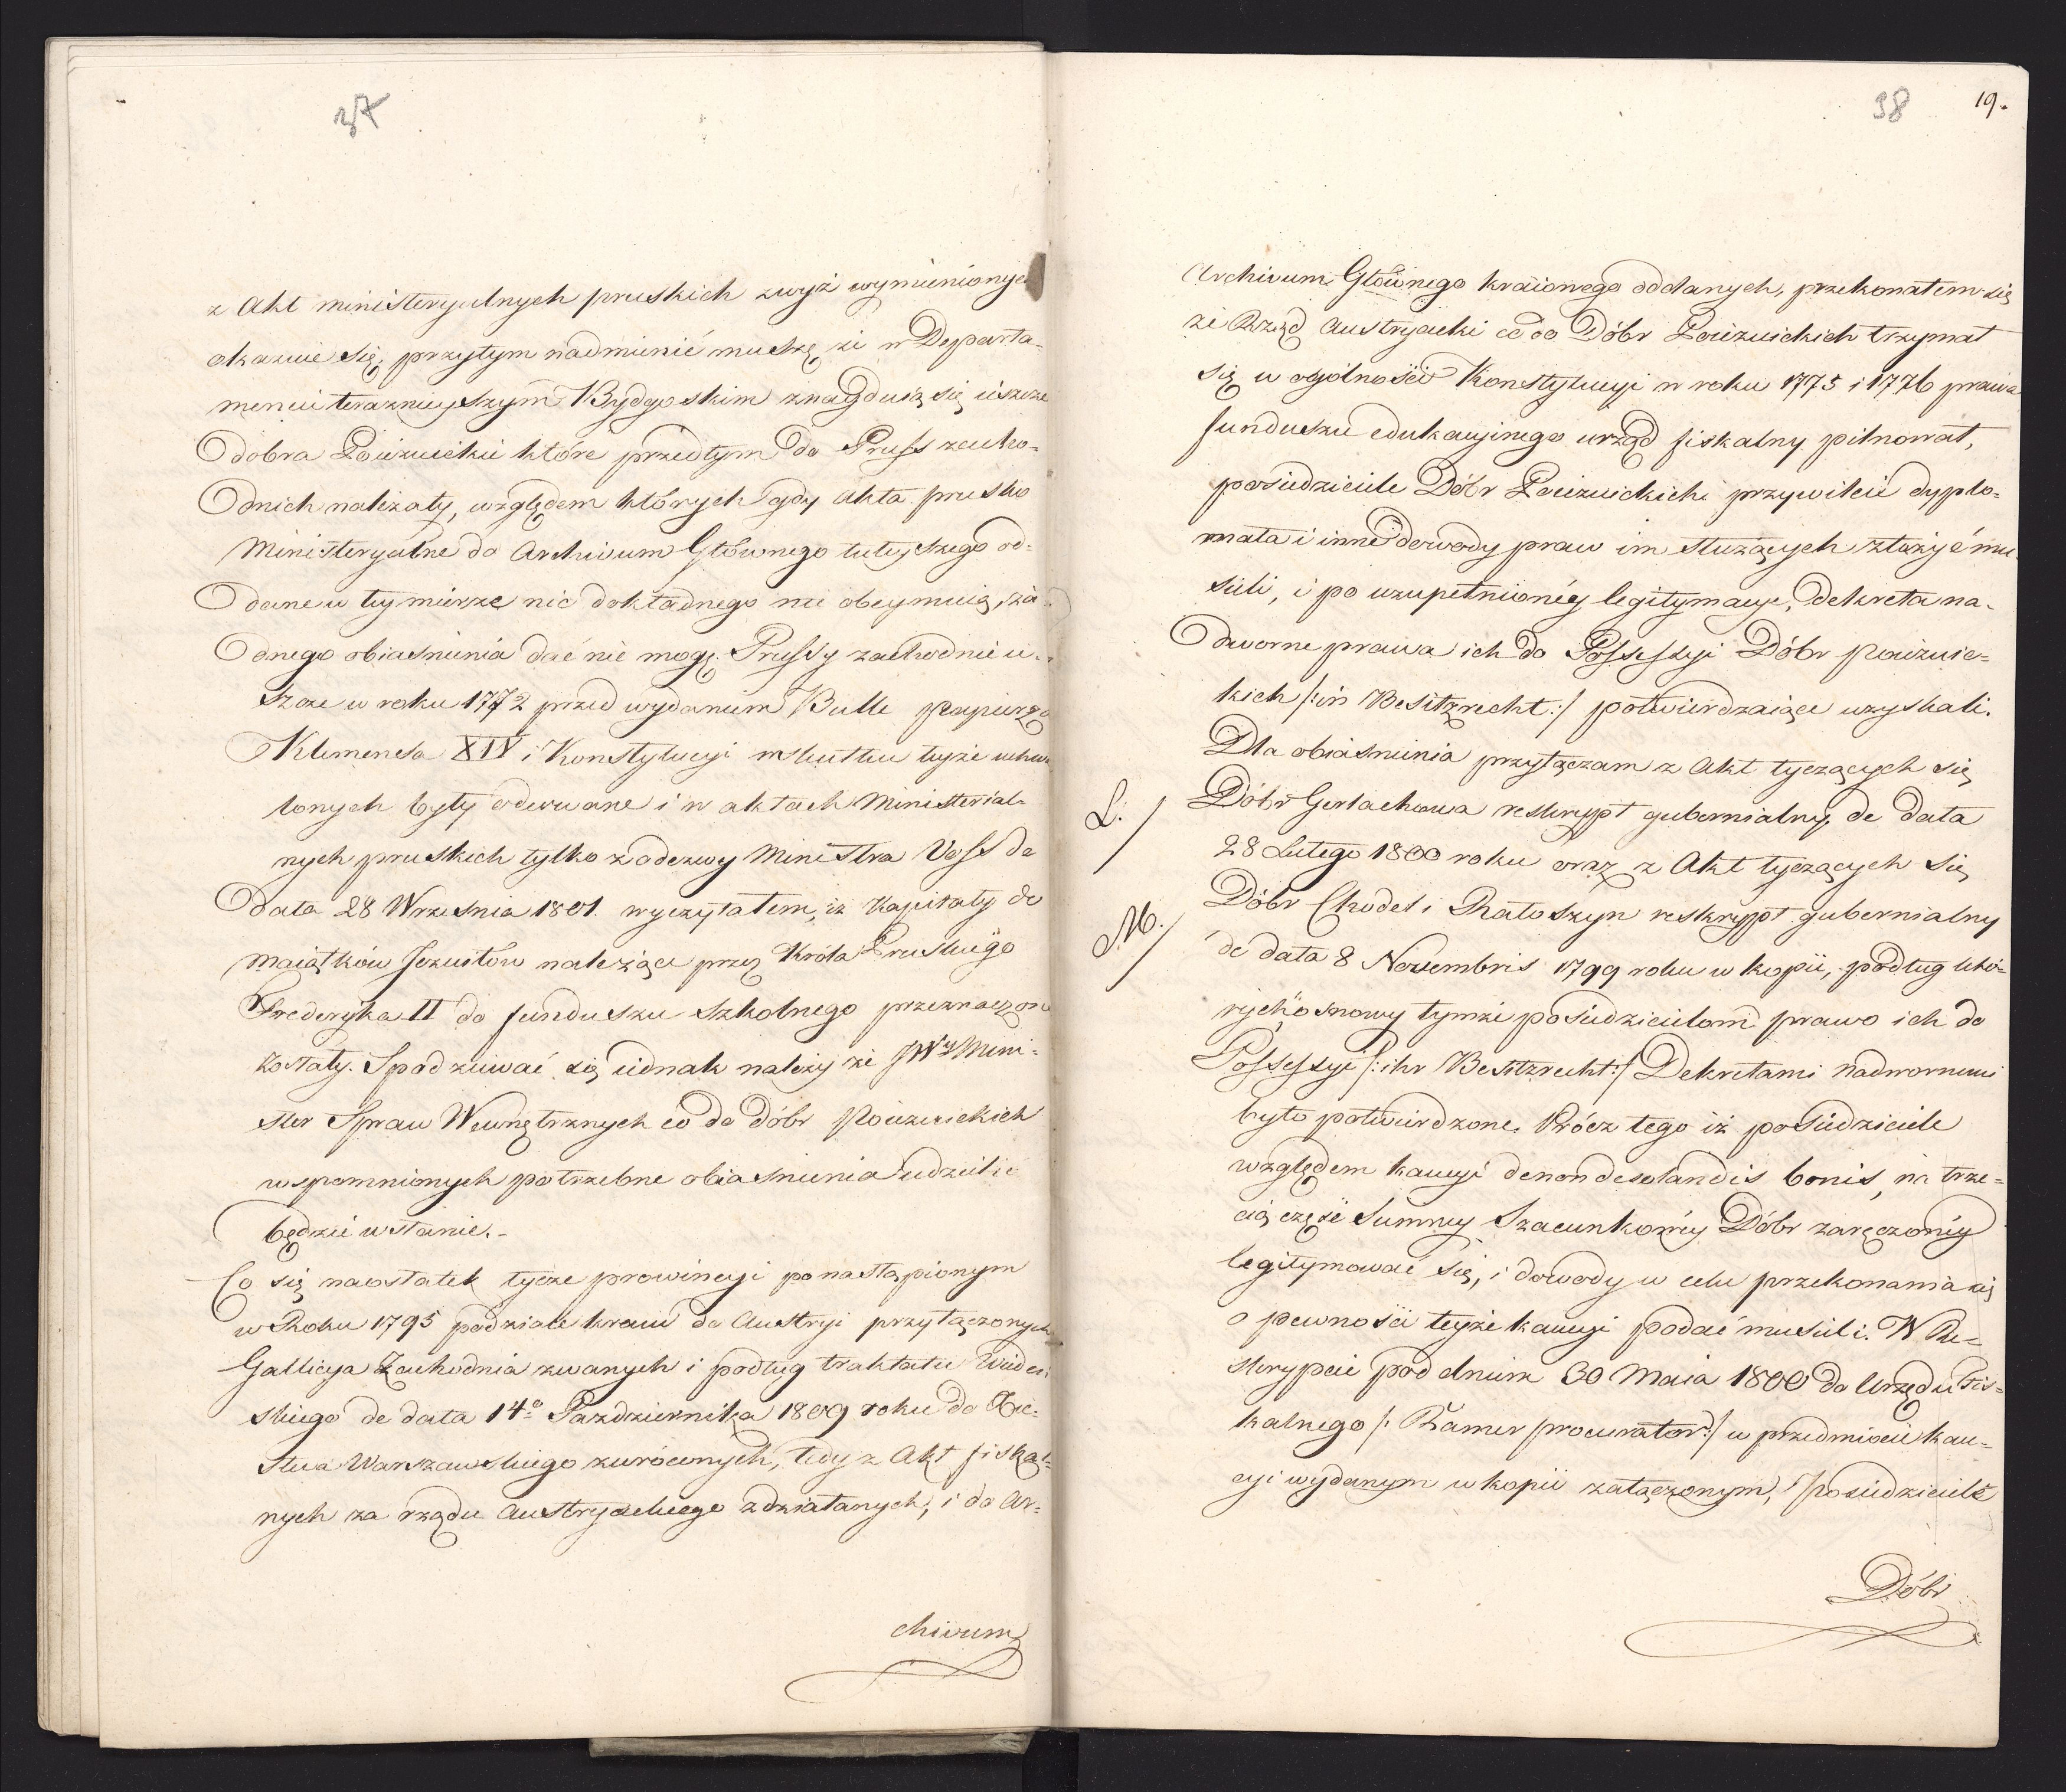 37
z Akt ministeryalnych pruskich zwyż wymienionych
okazuie się, przytym nadmienić muszę że w Departa-
mencie teraznieyszym Bydgoskim znayduią się ieszcze
dobra Poiezuickie które przedtym do Pruss zacho-
dnich należały, względem których gdy akta prusko
Ministeryalne do Archivum Głównego tuteyszego od-
dane w tey mierze nic dokładnego nie obeymuią, ża-
dnego obiasnienia dać nie mogę. Prussy zachodnie ie-
szcze w roku 1772 przed wydaniem Bulle Papieża
Klemensa XIV i Konstytucyi w skutku teyże uchwa
lonych były oderwane i w aktach Ministerial-
nych pruskich tylko z odezwy Ministra Voss de
data 28 Września 1801. wyczytałem, iż Kapitały do
maiątków Jezuitów należące przez Króla Pruskiego
Frederyka II do funduszu szkolnego przeznaczone
zostały. Spodziewać się iednak należy że JWy Mini-
ster Spraw Wewnętrznych co do dóbr Poiezuickich
wspomnionych potrzebne obiasnienia udzielić
będzie w stanie.-
Co się naostatek tycze prowincyi po nastąpionym
w Roku 1795 podziale kraiu do Austryi przyłączonych
Gallicya Zachodnia zwanych i podług traktatu Wideń
skiego de data 14o Pazdziernika 1809 roku do Xię-
stwa Warszawskiego zwróconych, tedy z Akt fiskal-
nych za rządu Austryackiego zdziałanych, i do Ar-
chivum
38 19.
Archivum Głównego kraiowego oddanych, przekonałem się
że Rząd Austryacki co do Dóbr Poiezuickich trzymał
się w ogólności Konstytucyi w roku 1775 i 1776 prawa
funduszu edukacyinego urząd fiskalny pilnował,
posiedziciele Dóbr Poiezuickich przywileie dyplo-
mata i inne dowody praw im służących złożyć mu-
sieli, i po uzupełnioney legitymacyi, Dekreta na-
dworne prawa ich do Possessyi Dóbr poiezuic-
kich /: ihr Besitzrecht :/ potwierdzaiące uzyskali.
Dla obiasnienia przyłączam z Akt tyczących się
L. / Dóbr Gerlachowa reskrypt gubernialny de data
28 Lutego 1800 roku oraz z Akt tyczących się
M. / Dóbr Chodel i Ratoszyn reskrypt gubernialny
de data 8 Novembris 1799 roku w kopii, podług któ-
rych osnowy tymże posiedzicielom prawo ich do
Possessyi /: ihr Besitzrecht :/ Dekretami nadwornemi
było potwierdzone. Prócz tego iż posiedziciele
względem kaucyi de non desolandis bonis, na trze-
cią część Summy Szacunkowéy Dóbr zaręczonéy
legitymować się, i dowody w celu przekonania się
o pewności teyże kaucyi podać musieli. W Re-
skrypcie pod dniem 30 Maia 1800 do Urzędu Fis-
kalnego /: Kamer procurator :/ w przedmiocie kau-
cyi wydanym w kopii załączonym, posiedziciele
Dóbr